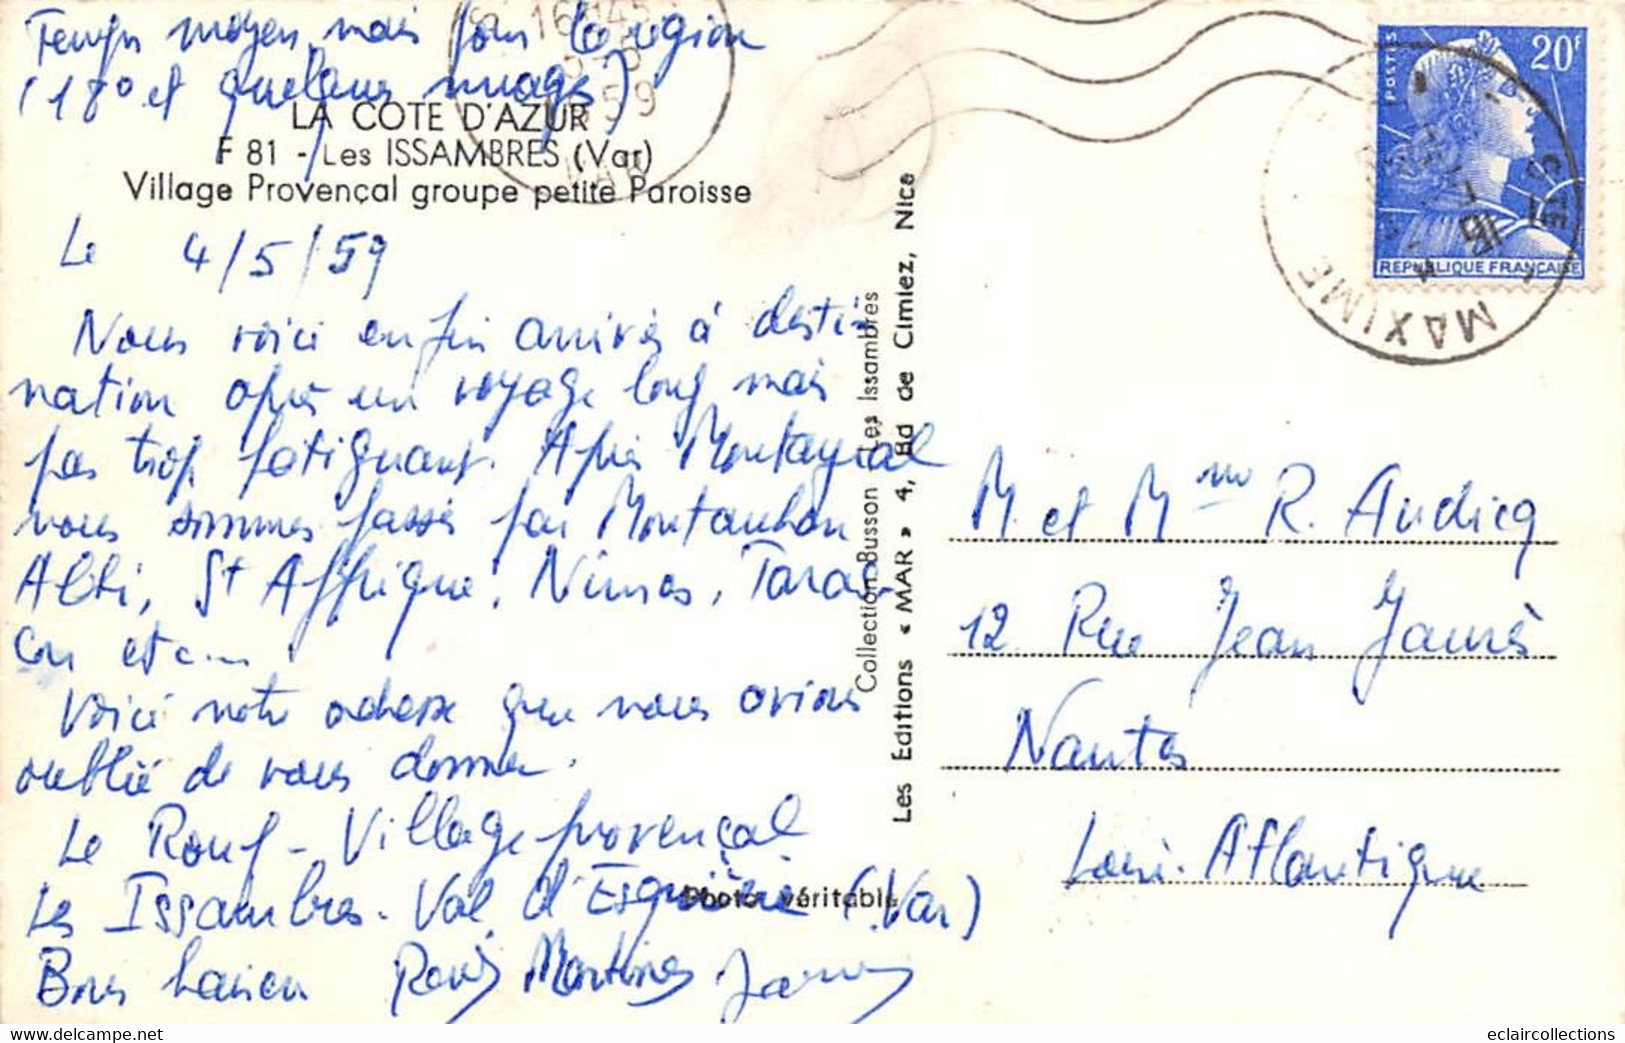 Temps moyen mais pour la région
(18° et quelques nuages)
LA COTE D'AZUR
F 81 - Les ISSAMBRES (Var)
Village Provençal groupe petite Paroisse
Le 4/5/59
Nous voici enfin arrivés à desti-
nation après un voyage long mais
pas trop fatiguant. Après Montayral
nous sommes passés par Montauban
Albi, St Affrique, Nimes, Taras-
con etc...
Voici notre adresse que nous avions
oublié de vous donner.
Le Rouf - Village provençal
Les Issambres. Val d'Esquières (Var)
Bons baisers
Collection Busson Les Issambres
Les Editions « MAR » 4, Bd de Cimiez, Nice
Photo véritable
POSTES
20F
REPUBLIQUE FRANÇAISE
STE MAXIME
M. et Mme R. Audicq
12 Rue Jean Jaurès
Nantes
Loire-Atlantique
eclaircollections